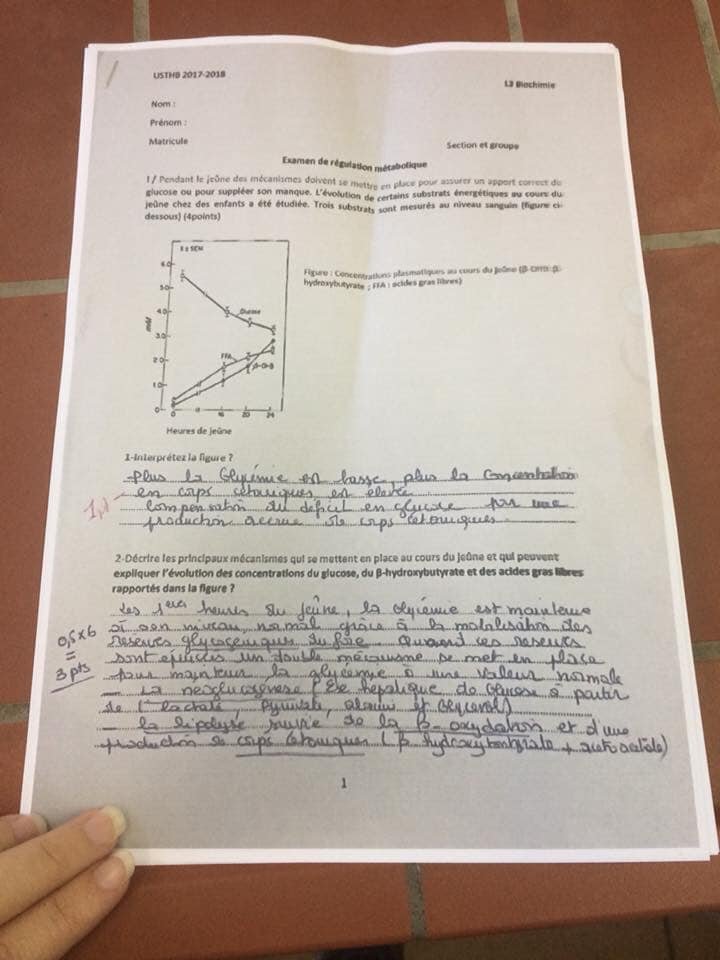 USTHB 2017-2018
L3 Biochimie
Nom :
Prénom :
Matricule
Section et groupe
Examen de régulation métabolique
1/ Pendant le jeûne des mécanismes doivent se mettre en place pour assurer un apport correct de
glucose ou pour suppléer son manque. L'évolution de certains substrats énergétiques au cours du
jeûne chez des enfants a été étudiée. Trois substrats sont mesurés au niveau sanguin (figure ci-
dessous) (4points)
Figure : Concentrations plasmatiques au cours du jeûne (β-OHB: β-
hydroxybutyrate ; FFA : acides gras libres)
± SEM
6.0
5.0
4.0
3.0
2.0
1.0
0
mM
FFA
β-OHB
0
16
20
24
Heures de jeûne
1-Interprétez la figure ?
Plus la Glycémie est basse, plus la Concentration
en corps cétoniques est élevée
1pt
Compensation du déficit en glucose par une
production accrue de corps cétoniques
2-Décrire les principaux mécanismes qui se mettent en place au cours du jeûne et qui peuvent
expliquer l'évolution des concentrations du glucose, du β-hydroxybutyrate et des acides gras libres
rapportés dans la figure ?
Les 1ères heures du jeûne, la Glycémie est maintenue
à son niveau normal grâce à la mobilisation des
0,5x6
=
3 pts
réserves glycogéniques du foie. Quand ces réserves
sont épuisées un double mécanisme se met en place
pour maintenir la glycémie à une valeur normale
- La néoglucogenèse ( hépatique de Glucose à partir
de l'lactate, Pyruvate, alanine et Glycérol)
- la lipolyse suivie de la β-oxydation et d'une
production de corps cétoniques (β hydroxybutyrate + acétoacétate)
1